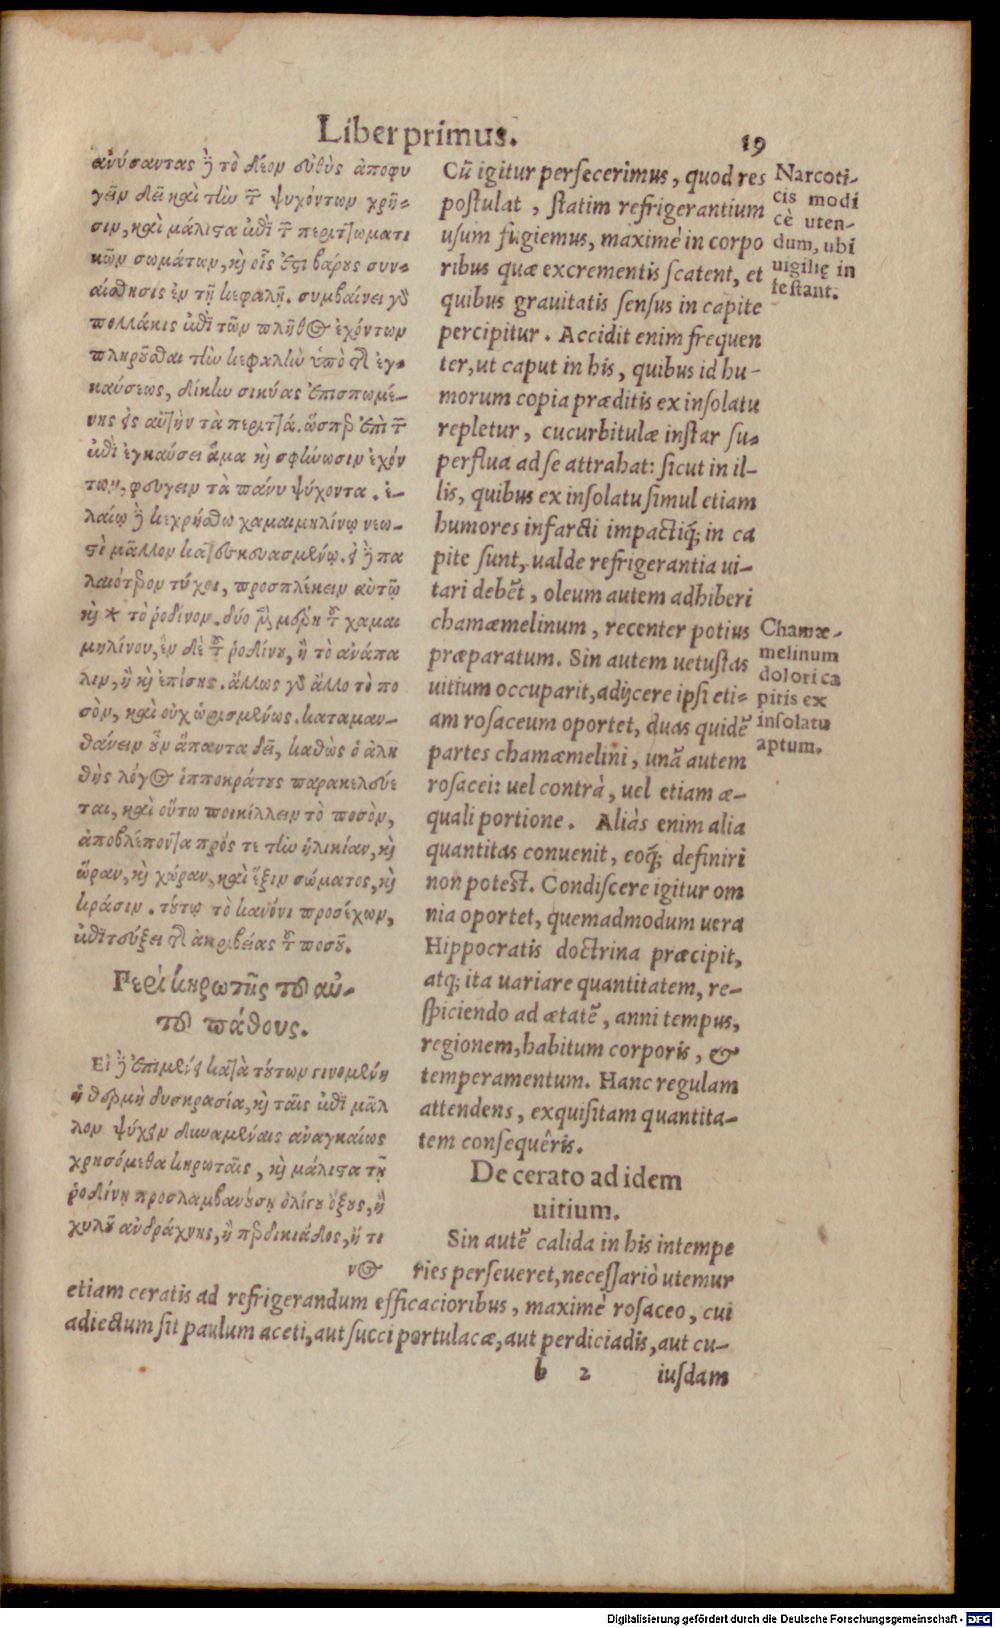 Liber primus.
19
ανύσαντας ἢ τὸ δέον εὐθὺς ἀποφυ
γεῖν δεῖ καὶ τὴν τῶν ψυχόντων χρῆ-
σιν, καὶ μάλιστα ἐπὶ τῶν περιττωματι
κῶν σωμάτων, καὶ οἷς ἐπὶ βάρους συν-
αίσθησις ἐν τῇ κεφαλῇ. συμβαίνει γὰρ
πολλάκις ἐπὶ τῶν πλῆθος ἐχόντων
πληροῦσθαι τὴν κεφαλὴν ὑπὸ τῆς ἐγ-
καύσεως, δίκην σικύας ἐπισπωμέ-
νης εἰς αὐτὴν τὰ περιττά. ὥσπερ ἐπὶ τῶν
ἐπὶ ἐγκαύσει ἅμα καὶ σφήνωσιν ἐχόν
των, φεύγειν τὰ πάνυ ψύχοντα. ἐ-
λαίῳ δὲ κεχρῆσθω χαμαιμηλίνῳ νεω-
στὶ μᾶλλον κατεσκευασμένῳ. εἰ δὲ πα
λαιότερον τύχοι, προσπλέκειν αὐτῷ
καὶ * τὸ ῥοδίνον. δύο μὲν μέρη τοῦ χαμαι
μηλίνου, ἓν δὲ τοῦ ῥοδίνου, ἢ τὸ ἀνάπα
λιν, ἢ καὶ ἐπίσης. ἄλλως γὰρ ἄλλο τὸ πο
σὸν, καὶ οὐχ ὡρισμένως. καταμαν-
θάνειν οὖν ἅπαντα δεῖ, καθὼς ὁ ἀλη
θὴς λόγος ἱπποκράτους παρακελεύε
ται, καὶ οὕτω ποικίλλειν τὸ ποσὸν,
ἀποβλέποντα πρός τε τὴν ἡλικίαν, καὶ
ὥραν, καὶ χώραν, καὶ ἕξιν σώματος, καὶ
κράσιν. τούτῳ τὸ κανόνι προσέχων,
ἐπιτεύξει τῆς ἀκριβείας τοῦ ποσοῦ.
Περὶ κηρωτῆς τοῦ αὐ-
τοῦ πάθους.
Εἰ δὲ ἐπιμένει κατὰ τούτων γινομένη
ἡ θερμὴ δυσκρασία, καὶ ταῖς ἐπὶ μᾶλ
λον ψύχειν δυναμέναις ἀναγκαίως
χρησόμεθα κηρωταῖς, καὶ μάλιστα τῇ
ῥοδίνῃ προσλαμβανούσῃ ὀλίγου ὄξους, ἢ
χυλοῦ ἀνδράχνης, ἢ περδικιάδος, ἤ τι
νος
Cũ igitur perfecerimus, quod res
postulat, statim refrigerantium
usum fugiemus, maximè in corpo
ribus quæ excrementis scatent, et
quibus grauitatis sensus in capite
percipitur. Accidit enim frequen
ter, ut caput in his, quibus id hu-
morum copia præditis ex insolatu
repletur, cucurbitulæ instar su-
perflua ad se attrahat: sicut in il-
lis, quibus ex insolatu simul etiam
humores infarcti impactiq́; in ca
pite sunt, ualde refrigerantia ui-
tari debẽt, oleum autem adhiberi
chamæmelinum, recenter potius
præparatum. Sin autem uetustas
uitium occuparit, adijcere ipsi eti-
am rosaceum oportet, duas quidẽ
partes chamæmelini, unã autem
rosacei: uel contrà, uel etiam æ-
quali portione. Aliàs enim alia
quantitas conuenit, eoq́; definiri
non potest. Condiscere igitur om
nia oportet, quemadmodum uera
Hippocratis doctrina præcipit,
atq; ita uariare quantitatem, re-
spiciendo ad ætatẽ, anni tempus,
regionem, habitum corporis, &
temperamentum. Hanc regulam
attendens, exquisitam quantita-
tem consequêris.
De cerato ad idem
uitium.
Sin autẽ calida in his intempe
ries perseueret, necessariò utemur
etiam ceratis ad refrigerandum efficacioribus, maximè rosaceo, cui
adiectum sit paulum aceti, aut succi portulacæ, aut perdiciadis, aut cu-
b 2
iusdam
Narcoti-
cis modi
cè uten-
dum, ubi
uigilię in
festant.
Chamæ-
melinum
dolori ca
pitis ex
insolatu
aptum.
Digitalisierung gefördert durch die Deutsche Forschungsgemeinschaft - DFG